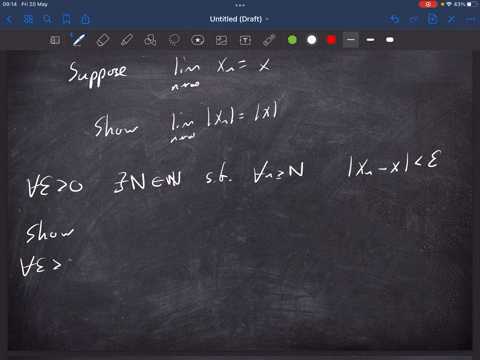 09:14 Fri 20 May
43%
Untitled (Draft)
Suppose lim xₙ = x
n→∞
Show lim |xₙ| = |x|
n→∞
∀ε>0 ∃N∈ℕ s.t. ∀n≥N |xₙ - x| < ε
Show
∀ε>